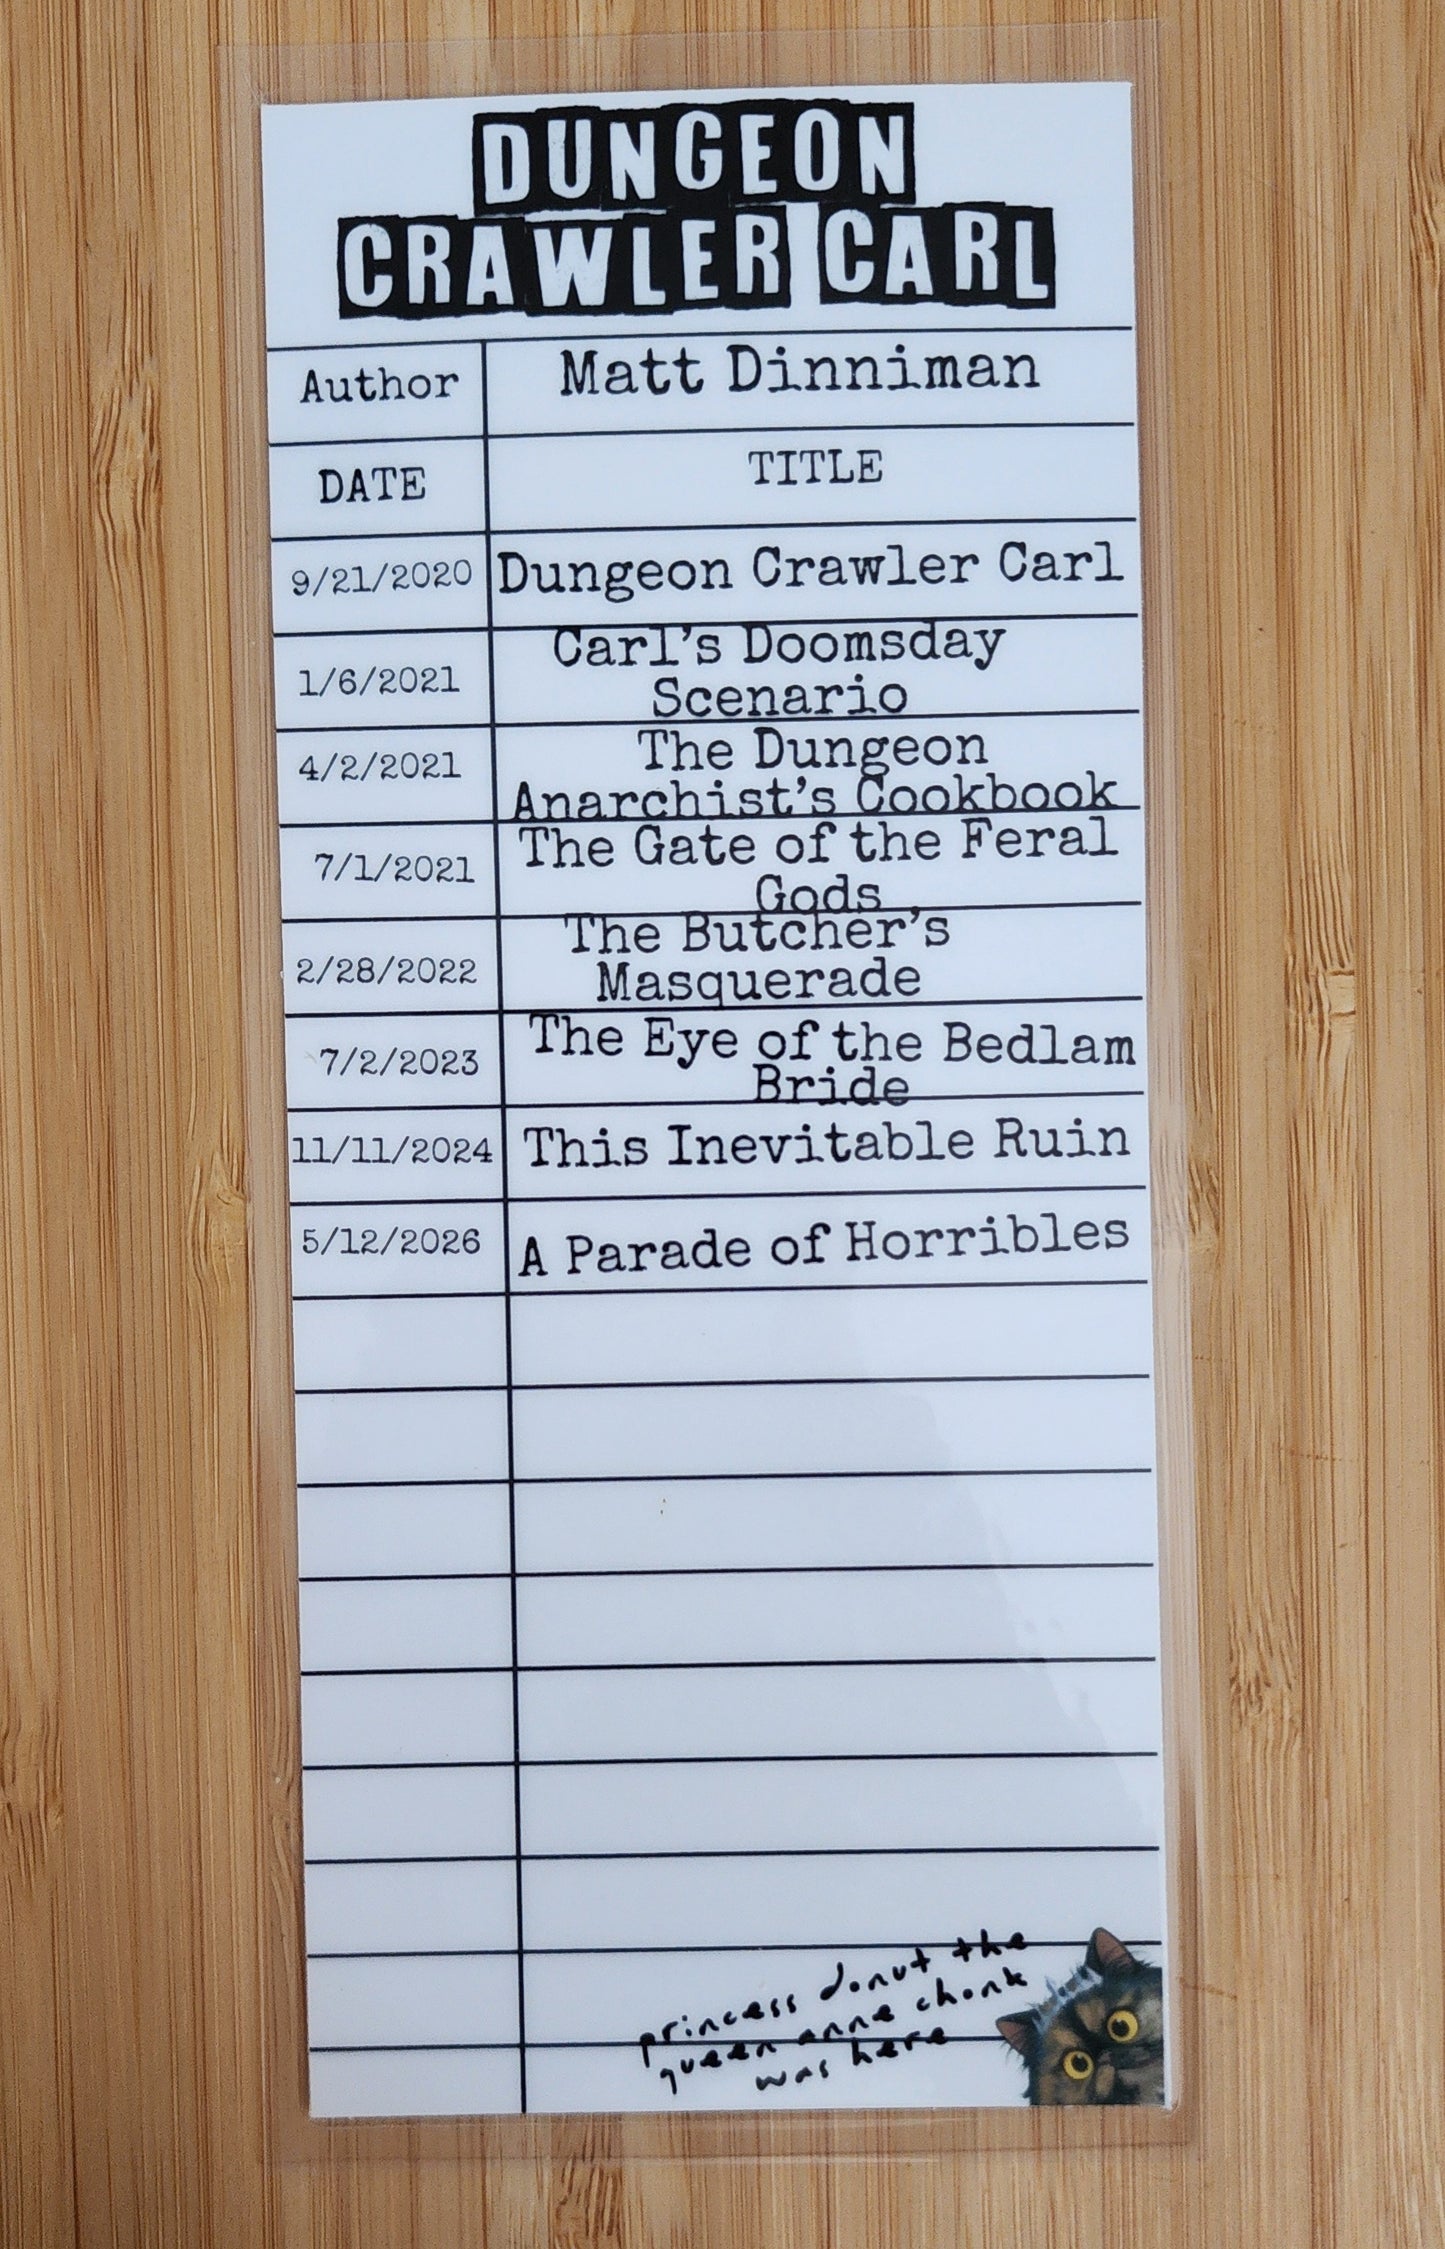 DUNGEON
CRAWLER CARL
Author Matt Dinniman
DATE TITLE
9/21/2020 Dungeon Crawler Carl
1/6/2021 Carl's Doomsday
Scenario
4/2/2021 The Dungeon
Anarchist's Cookbook
7/1/2021 The Gate of the Feral
Gods
2/28/2022 The Butcher's
Masquerade
7/2/2023 The Eye of the Bedlam
Bride
11/11/2024 This Inevitable Ruin
5/12/2026 A Parade of Horribles
princess donut the
queen anne chonk
was here